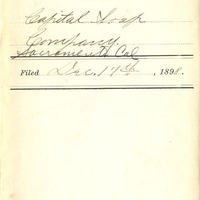 Capital Soap
Company,
Sacramento Cal
Filed Dec. 17th, 1898.